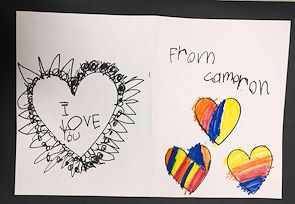 I
LOVE
YOU
From
camaron